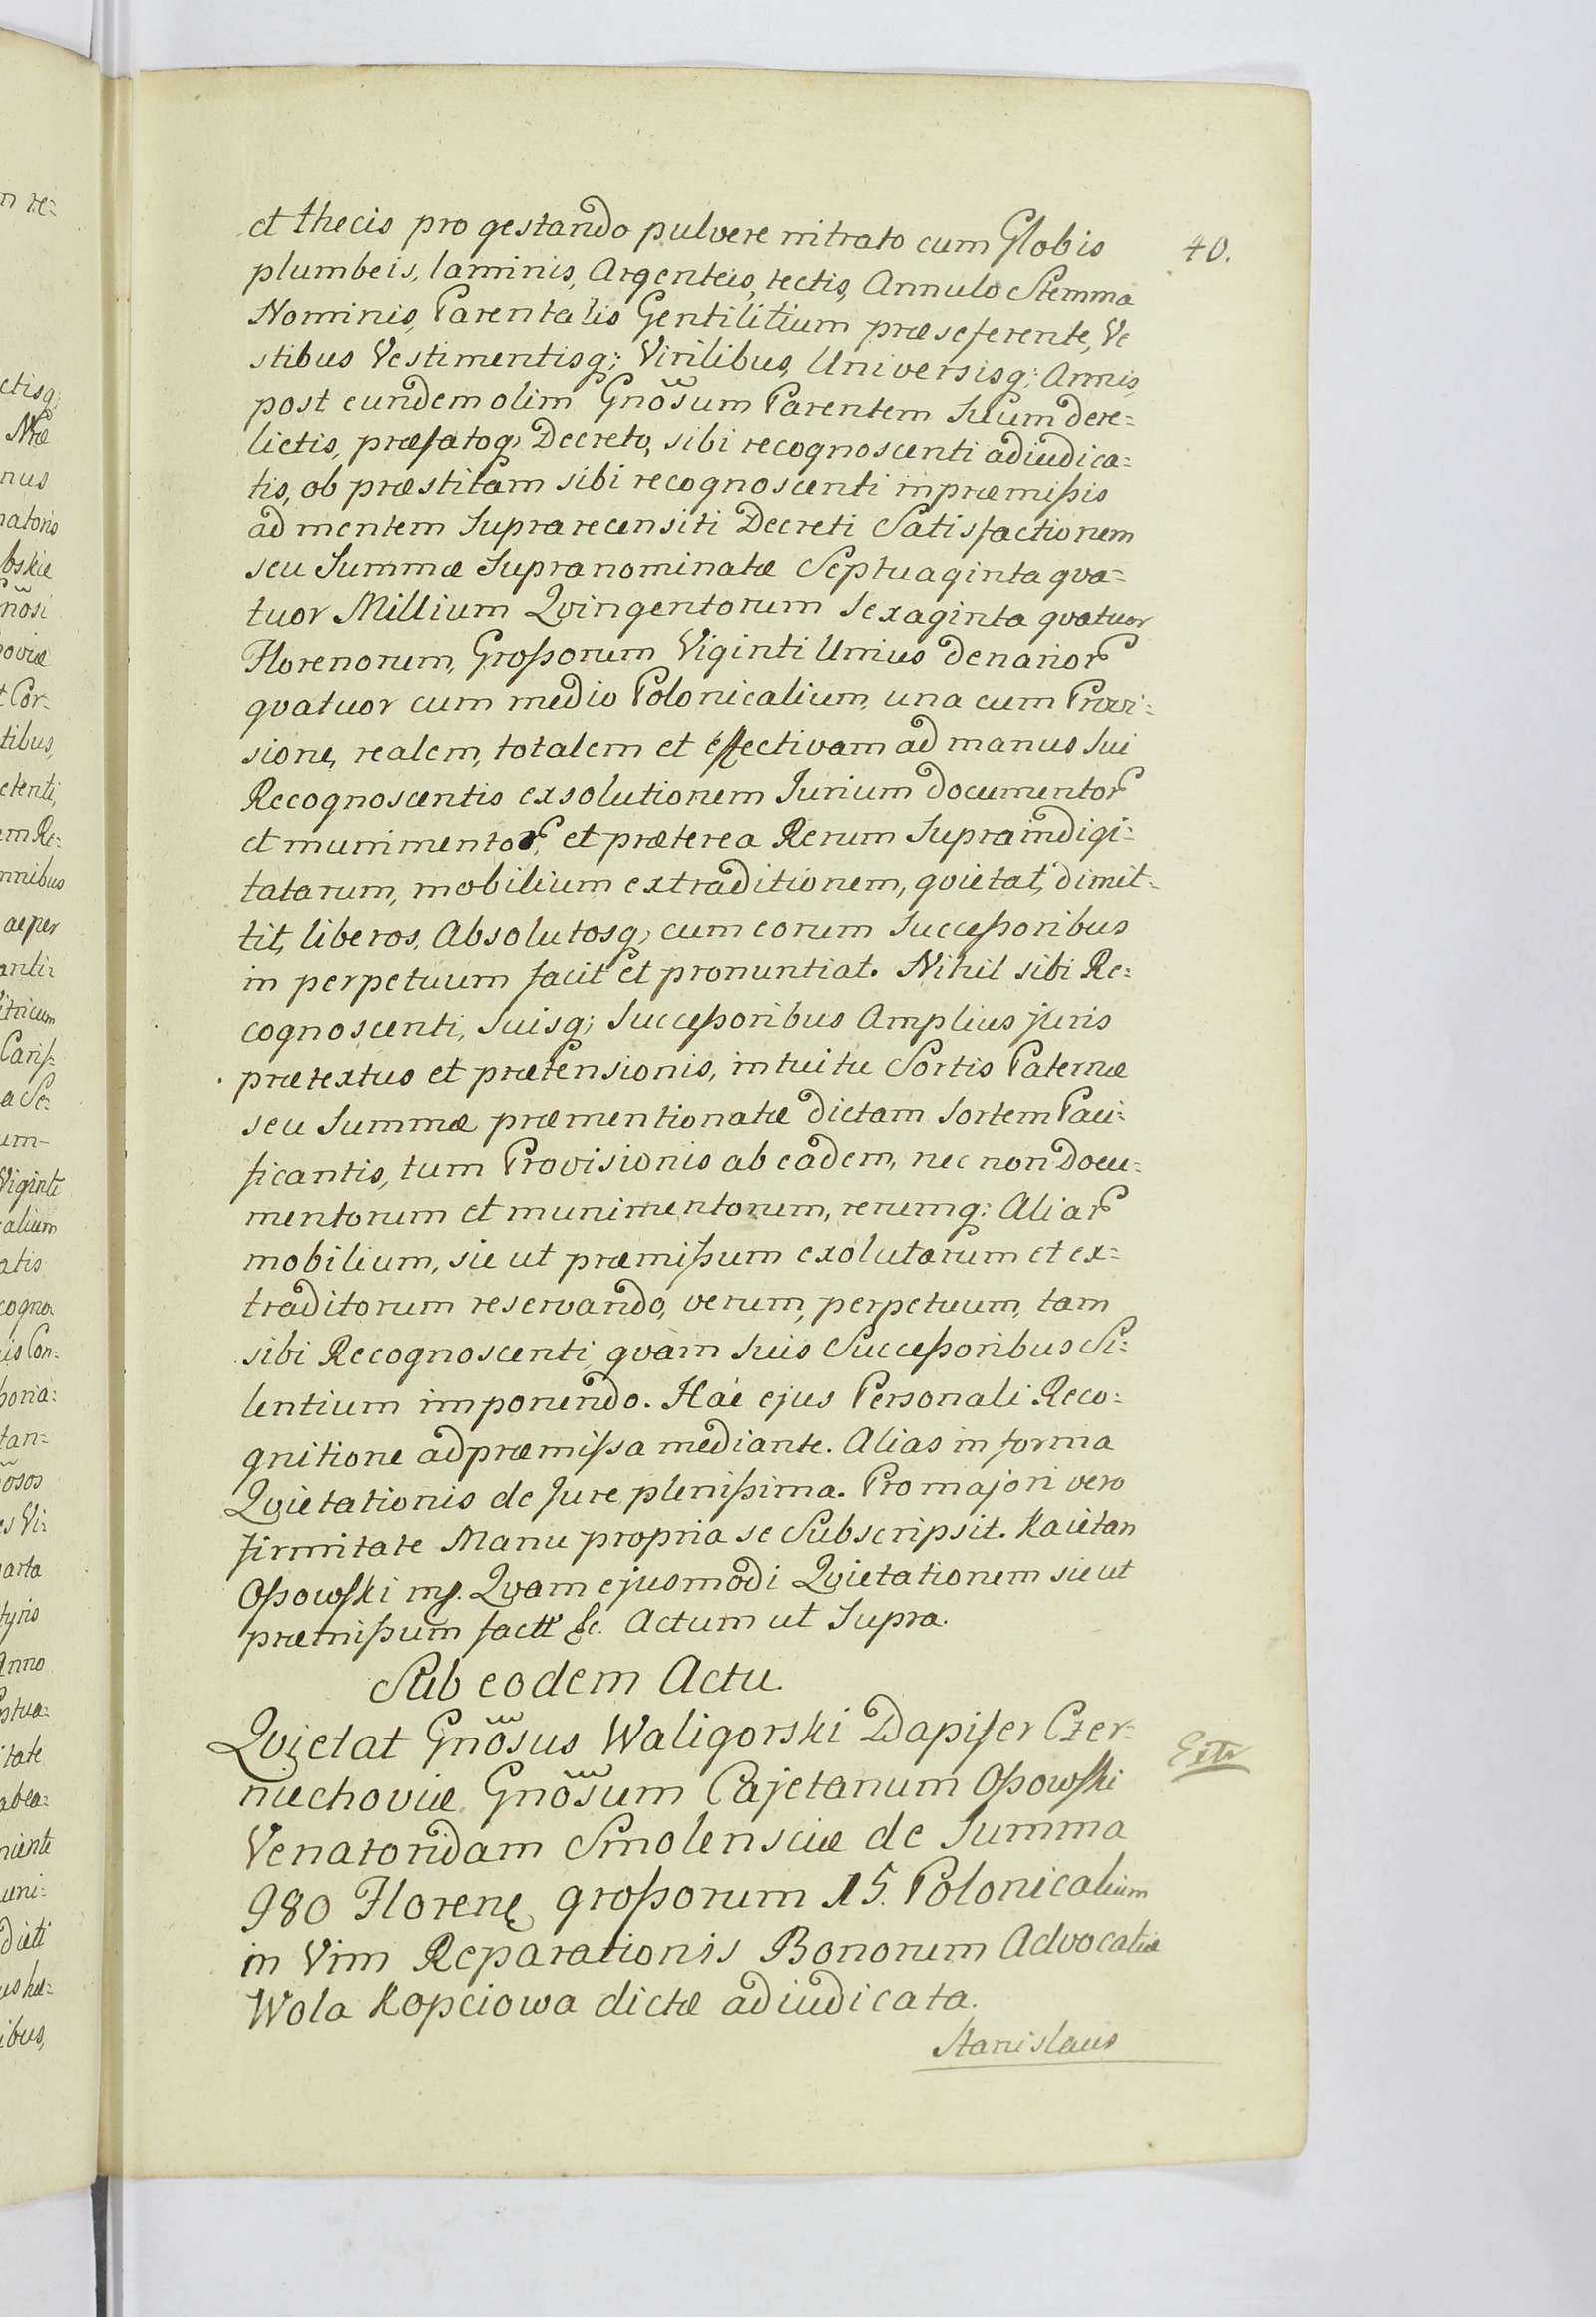 40.
et thecis pro gestando pulvere nitrato cum Globis
plumbeis, laminis, Argenteis, tectis, Annulo Stemma
Nominis, Parentalis Gentilitium præseferente, Ve
stibus Vestimentisq; Virilibus, Universisq; Armis,
post eundem olim Gnõsum Parentem Suum dere=
lictis, præfatoq; Decreto, sibi recognoscenti adiudica=
tis, ob præstitam sibi recognoscenti in præmißis
ad mentem Supra recensiti Decreti Satisfactionem
seu Summæ Supra nominatæ Septuaginta qva=
tuor Millium Qvingentorum Sexaginta qvatuor
Florenorum, Großorum Viginti Unius denarior
qvatuor cum medio Polonicalium, una cum Provi=
sione, realem, totalem et effectivam ad manus Sui
Recognoscentis exsolutionem Jurium documentor
et munimentor, et præterea Rerum Supraindigi=
tatarum, mobilium extraditionem, qvietat, dimit=
tit, liberos, Absolutosq; cum eorum Succeßoribus
in perpetuum facit et pronuntiat. Nihil sibi Re=
cognoscenti, Suisq; Succeßoribus Amplius juris
prætextus et prætensionis, intuitu Sortis Paternæ
seu Summæ præmentionatæ dictam Sortem Paci=
ficantis, tum Provisionis ab eadem, nec non Docu=
mentorum et munimentorum, rerumq: Aliar
mobilium, sic ut præmißum exolutarum et ex=
traditorum reservando, verum, perpetuum, tam
sibi Recognoscenti qvàm Suis Succeßoribus Si=
lentium imponendo. Hac ejus Personali Reco=
gnitione ad præmissa mediante. Alias in forma
Qvietationis de Jure plenißima. Pro majori vero
firmitate Manu propria se Subscripsit. Kaietan
Oßowski mp. Qvam ejusmodi Qvietationem sic ut
præmißum factt &c. Actum ut Supra.
Sub eodem Actu.
Qvietat Gnõsus Waligorski Dapifer Czer=
niechoviæ Gnõsum Cajetanum Oßowski
Venatoridam Smolensciæ de Summa
980 Floren großorum 15. Polonicalium
in Vim Reparationis Bonorum Advocatiæ
Wola Kopciowa dictæ adiudicata.
Stanislaus